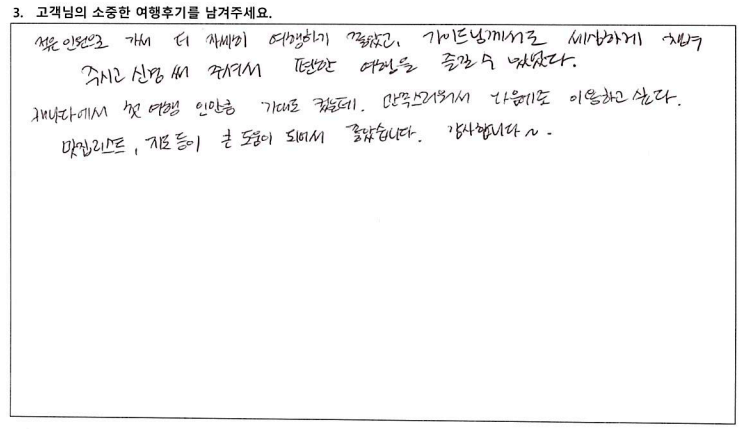 3. 고객님의 소중한 여행후기를 남겨주세요.
적은 인원으로 가서 더 자세히 여행하기 좋았고, 가이드님께서도 세심하게 챙겨
주시고 신경써 주셔서 편안한 여행을 즐길 수 있었다.
캐나다에서 첫 여행 인만큼 기대도 컸는데. 만족스러워서 다음에도 이용하고 싶다.
맛집리스트, 지도 등이 큰 도움이 되어서 좋았습니다. 감사합니다~.